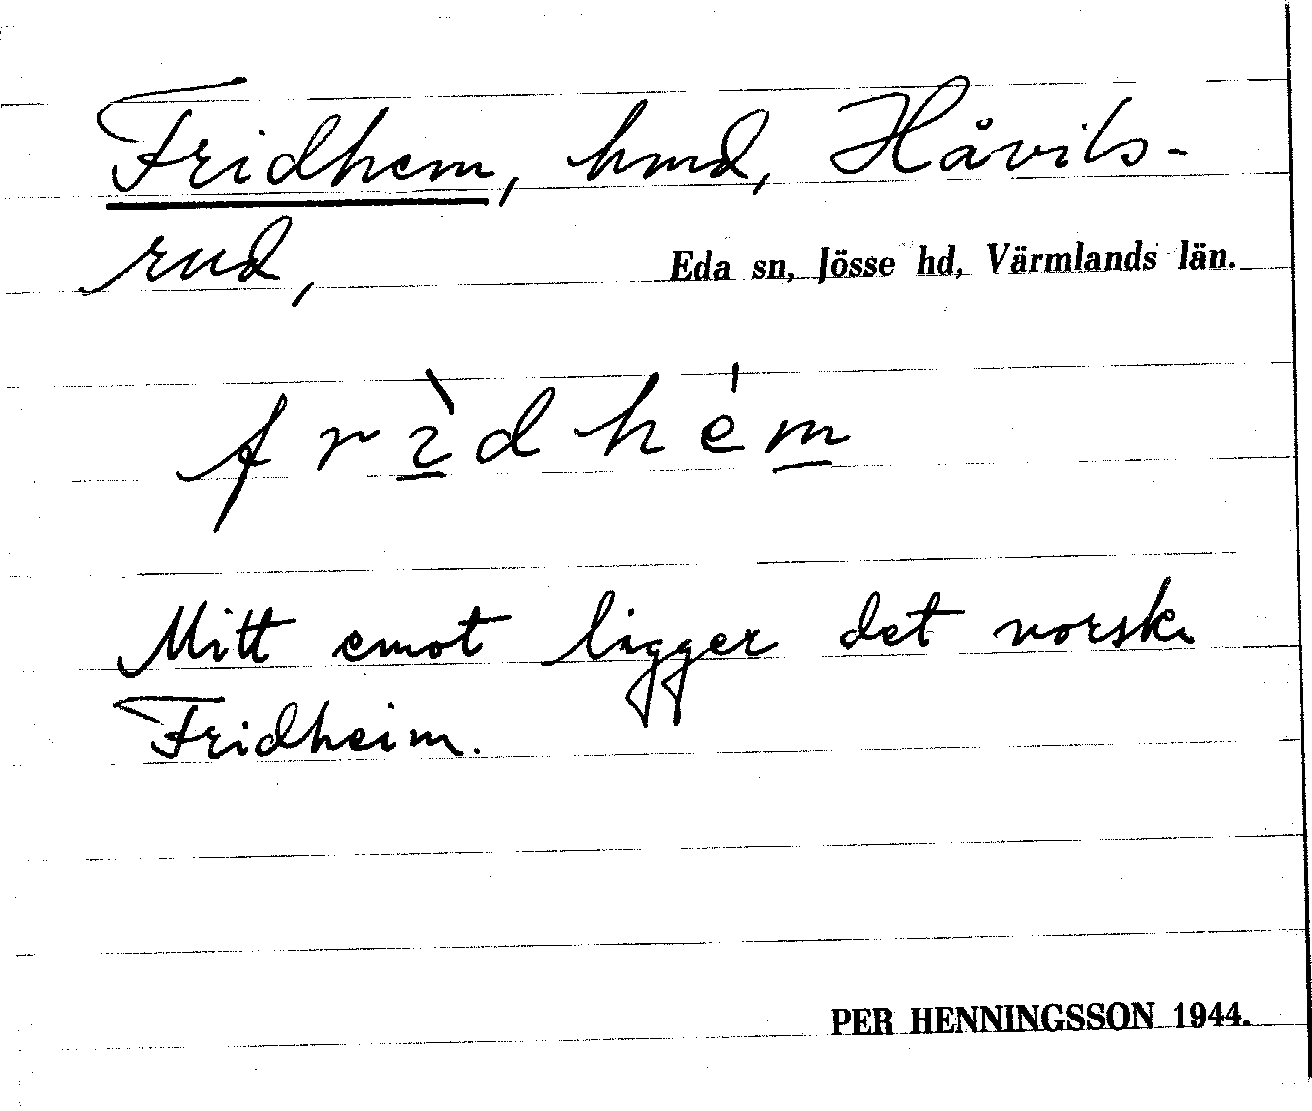 Fridhem, hmd, Håvils-
rud,
Eda sn, Jösse hd, Värmlands län.
frìdhém
Mitt emot ligger det norska
Fridheim.
PER HENNINGSSON 1944.